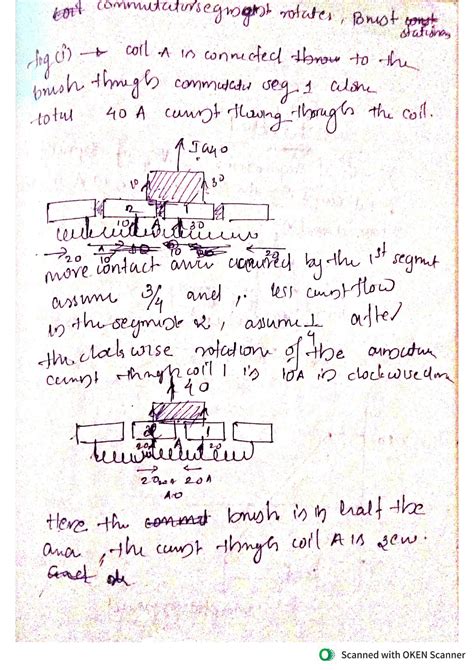 commutator segment rotates, Brush stationary
fig (i) → coil A is connected to the
brush through commutator seg 1 alone
total 40 A current flowing through the coil.
Ia 40
10 30
2 1
10 A 30
20 10 10 20
more contact area covered by the 1st segment
assume 3/4 and, less current flow
in the segment 2, assume 1/4 after
the clockwise rotation of the armature
current through coil 1 is 10A in clockwise
40
2 1
20A A 20
20A 20A
40
Here the brush is in half the
area, the current through coil A is zero.
Scanned with OKEN Scanner